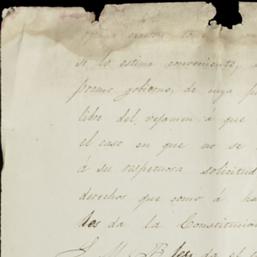 si lo estima conveniente,
premo gobierno, de cuya
libre del refamen á que
el caso en que no se
á su respetuosa solicitud
derechos que como á ha
les da la Constitucion
S. M. B. les da el